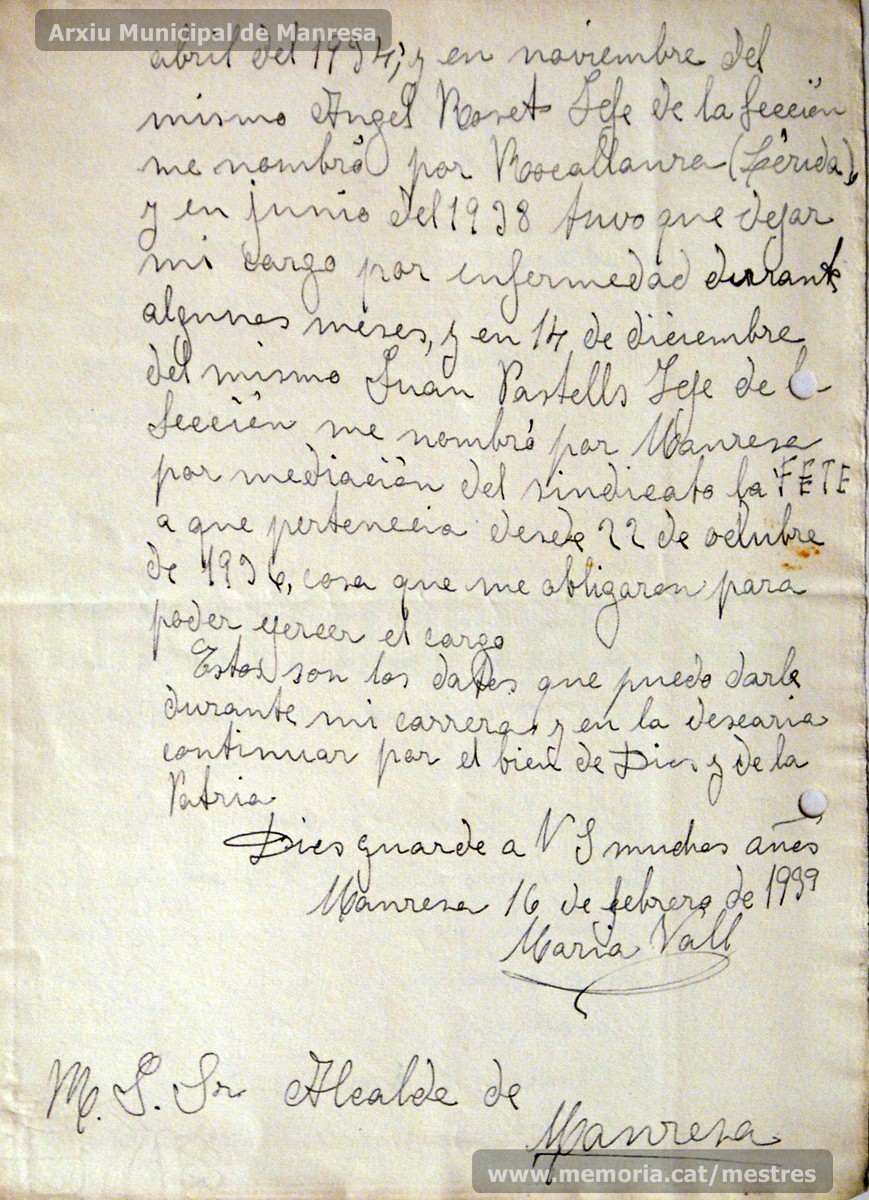 Arxiu Municipal de Manresa
abril del 1934; y en noviembre del
mismo Angel Roset Jefe de la Sección
me nombró por Rocallaura (Lérida),
y en junio del 1938 tuvo que dejar
mi cargo por enfermedad durrante
algunos meses, y en 14 de diciembre
del mismo Juan Pastells Jefe de la
Sección me nombró por Manresa
por mediación del sindicato la FETE
a que pertenecia desde 22 de octubre
de 1936, cosa que me obligaron para
poder ejercer el cargo
Estos son los dates que puedo darle
durante mi carrera, y en la desearia
continuar por el bien de Dios y de la
Patria
Dios guarde a V S muchos años
Manresa 16 de febrero de 1939
Maria Vall
M. I. Sr Alcalde de
Manresa
www.memoria.cat/mestres